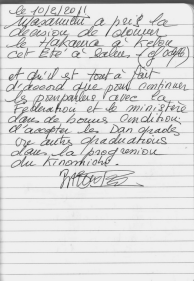 le 10/2/2011
a pris la
décision de donner
le Hakama à
cet Eté à
et qu'il est tout à fait
d'accord que pour continuer
les pourparlers avec la
Fédération et le ministère
dans de bonnes conditions
d'accepter les Dan grades
ou autres graduations
dans la progression
du Kinomichi.